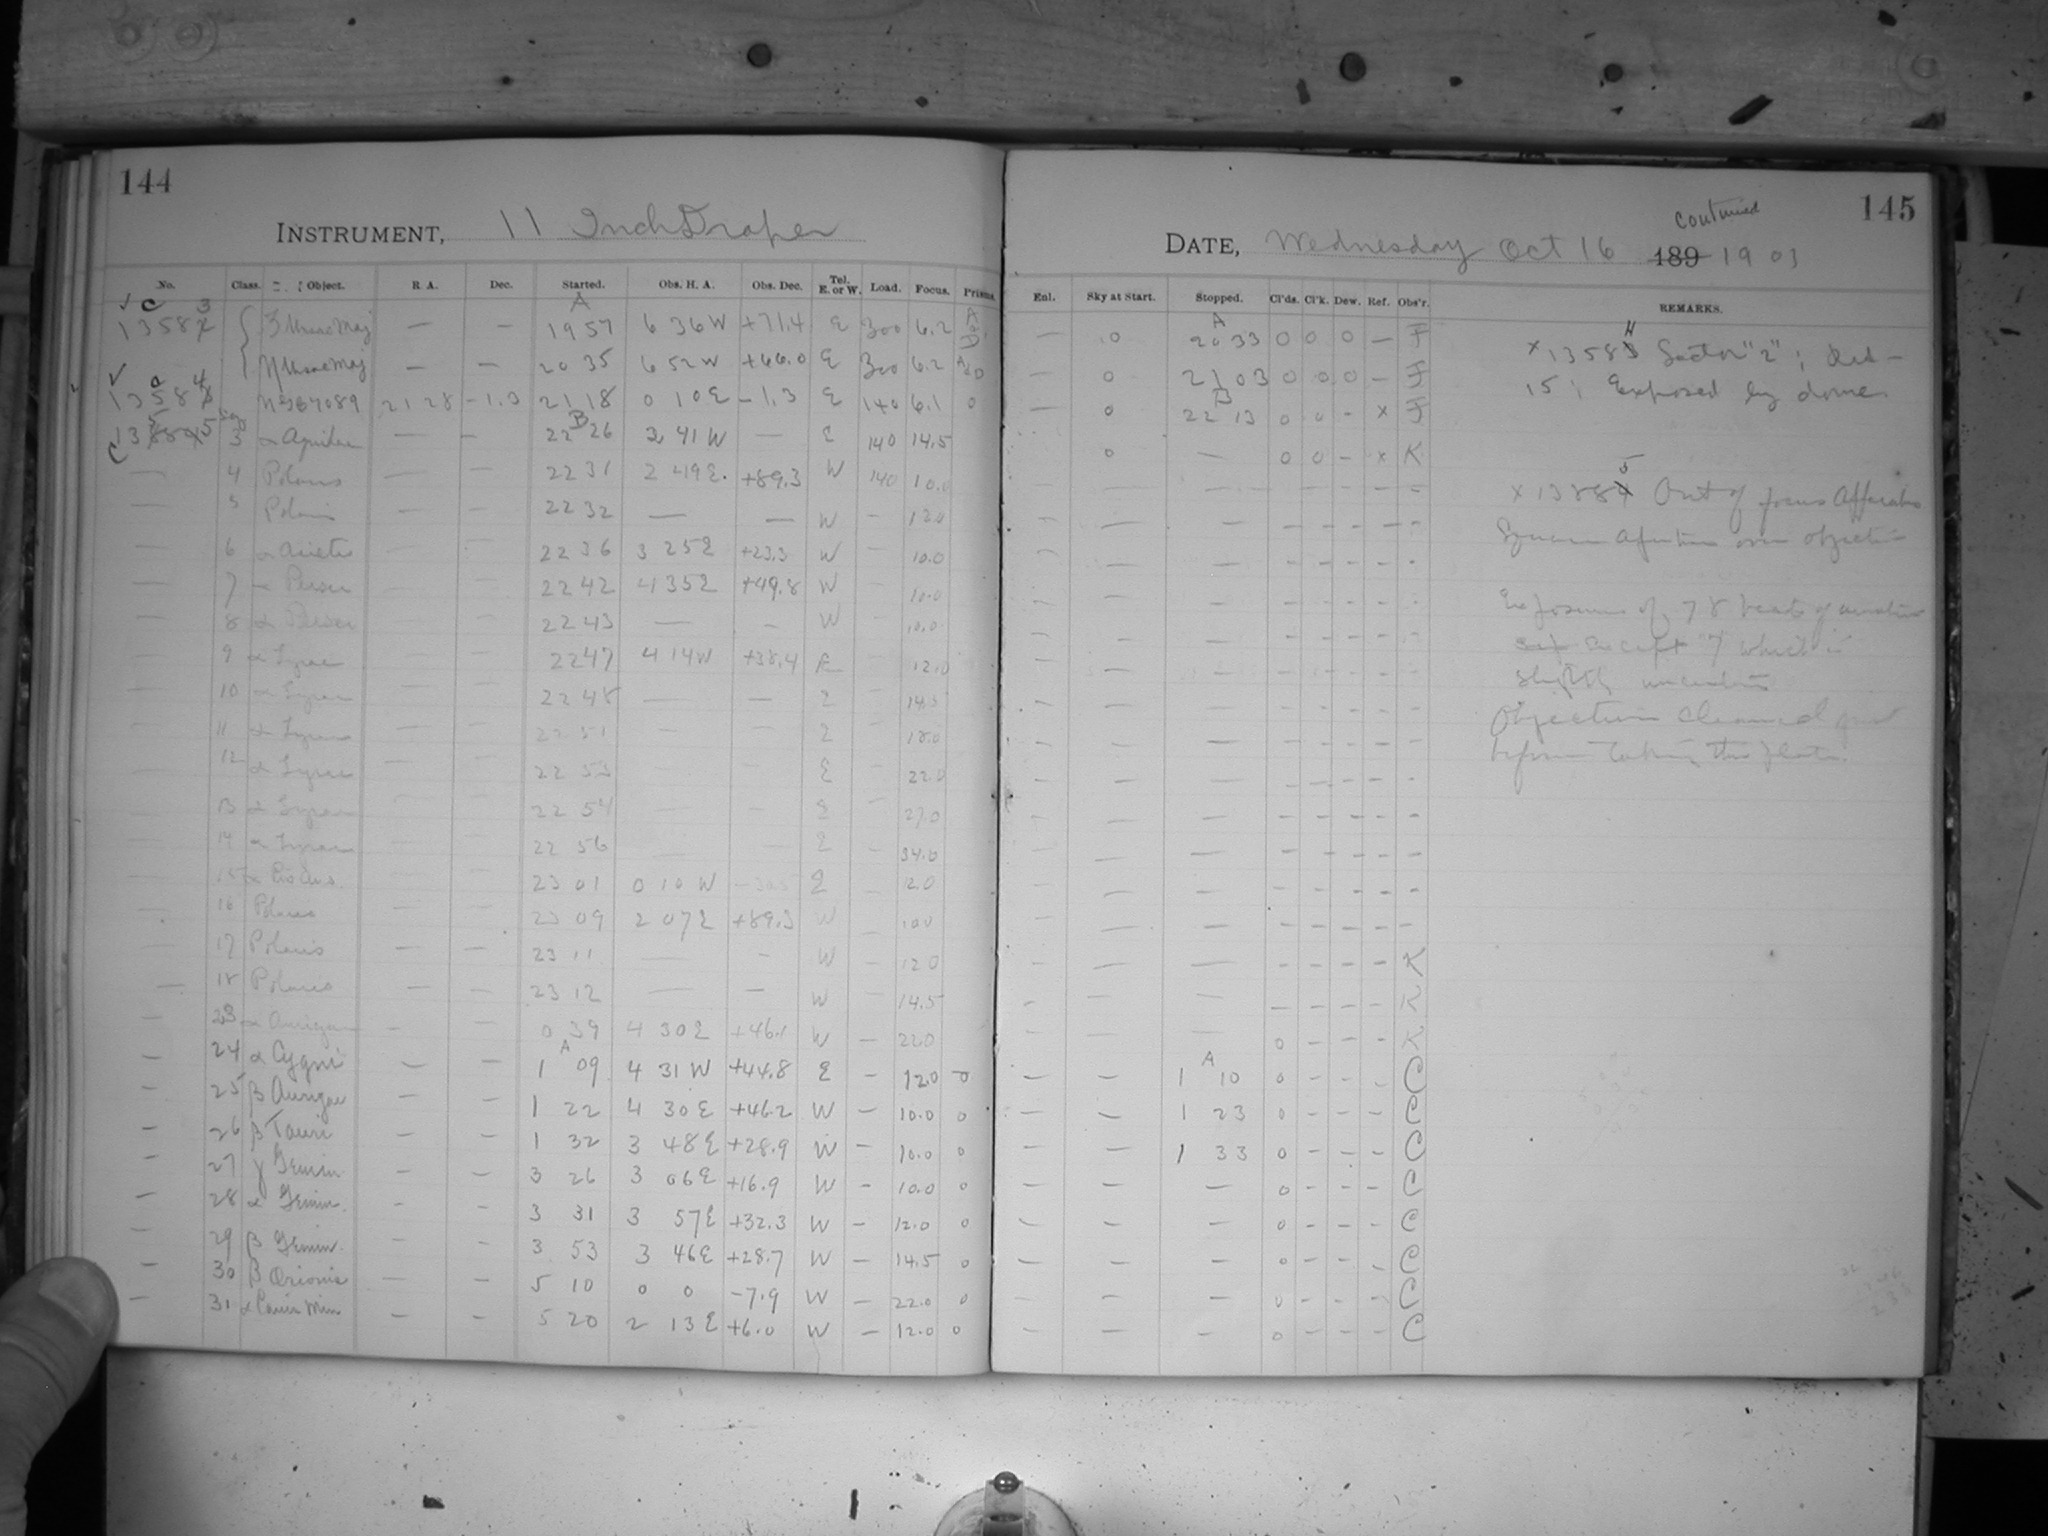 144
INSTRUMENT, 11 Inch Draper
No. Class. Object. R. A. Dec. Started. Obs. H. A. Obs. Dec. Tel. E. or W. Load. Focus. Prisms.
1358 3 ζ Ursae Maj — — A 19 57 6 36 W +71.4 E 300 6.2
η Ursae Maj — — 20 35 6 52 W +66.0 E 300 6.2
1358 4 21 28 -1.3 21 18 0 10 E -1.3 E 140 6.1 0
3 α Aquilae — — B 22 26 3 41 W — E 140 14.5
— 4 Polaris — — 22 31 2 49 E. +89.3 W 140 10.0
— 5 Polaris — — 22 32 — — W — 12.0
— 6 α Arietis — — 22 36 3 25 E +23.3 W — 10.0
— 7 α Persei — — 22 42 4 35 E +49.8 W — 10.0
— 8 α Persei — — 22 43 — — W — 10.0
— 9 α Lyrae — — 22 47 4 14 W +38.4 E — 12.0
— 10 α Lyrae — — 22 48 — — E — 14.5
— 11 α Lyrae — — 22 51 — — E — 18.0
— 12 α Lyrae — — 22 53 — — E — 22.0
— 13 α Lyrae — — 22 54 — — E — 27.0
— 14 α Lyrae — — 22 56 — — E 34.0
— 15 α — — 23 01 0 10 W E — 12.0
— 16 Polaris — — 23 09 2 07 E +89.3 W — 10.0
— 17 Polaris — — 23 11 — — W — 12.0
— 18 Polaris — — 23 12 — — W — 14.5
— 23 α Aurigae — — 0 39 4 30 E +46.1 W — 22.0
— 24 α Cygni — — A 1 09 4 31 W +44.8 E — 12.0 0
— 25 β Aurigae — — 1 22 4 30 E +46.2 W — 10.0 0
— 26 β Tauri — — 1 32 3 48 E +28.9 W — 10.0 0
— 27 γ Gemin — — 3 26 3 06 E +16.9 W — 10.0 0
— 28 α Gemin. — — 3 31 3 57 E +32.3 W — 12.0 0
— 29 β Gemin. — — 3 53 3 46 E +28.7 W — 14.5 0
— 30 β Orionis — — 5 10 0 0 -7.9 W — 22.0 0
— 31 α Canis Min — — 5 20 2 13 E +6.0 W — 12.0 0
145
continued
DATE, Wednesday Oct 16 189 1903
Enl. Sky at Start. Stopped. Cl'ds. Cl'k. Dew. Ref. Obs'r. REMARKS.
— 0 A 20 33 0 0 0 — F
— 0 21 03 0 0 0 — F
— 0 B 22 13 0 0 — x F
0 — 0 0 — x K
— — — — — — — K
— — — — — — — K
— — — 0 — — — K
— — A 1 10 0 — — — C
— — 1 23 0 — — — C
— — 1 33 0 — — — C
— — — 0 — — — C
— — — 0 — — — C
— — — 0 — — — C
— — — 0 — — — C
— — — 0 — — — C
x 1358 Sector "2";
15; Exposed by dome
Out of focus Apparatus
Square aperture over objective
Exposures of 78 beats
except 7 which is
slightly uncertain
Objective cleaned just
before taking this plate.